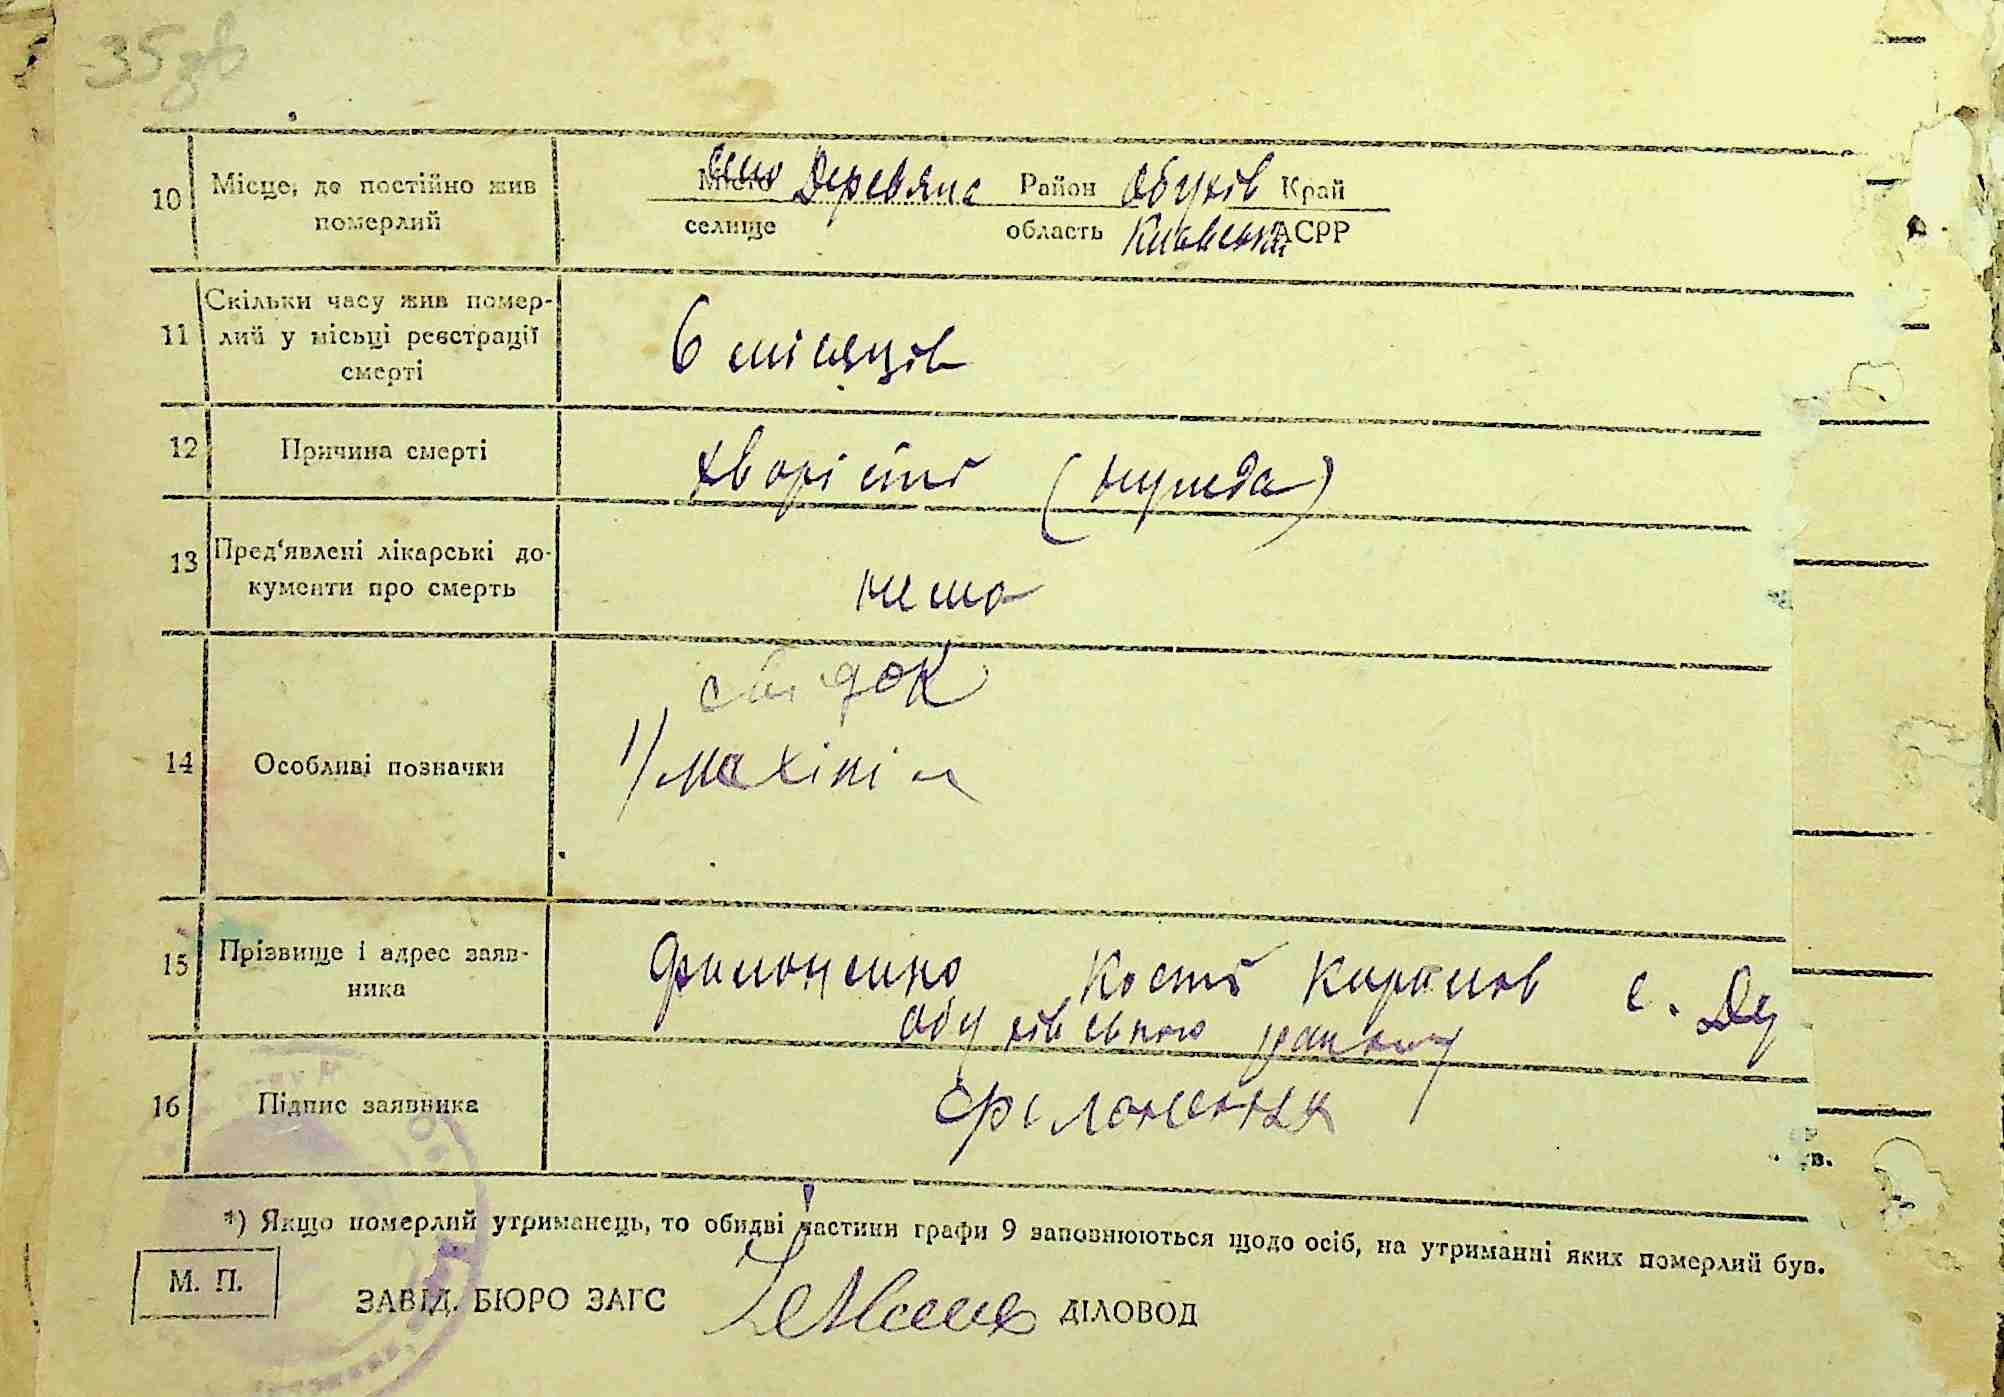 35 зв
10 Місце, де постійно жив померлий
село Деревяна Район Обухів Край
Місто
селище область Київська АСРР
11 Скільки часу жив помер-
лий у місці реєстрації
смерті
6 місяців
12 Причина смерті
хворість (нужда)
13 Пред'явлені лікарські до-
кументи про смерть
нема
14 Особливі позначки
свідок
1/ Махіні
15 Прізвище і адрес заяв-
ника
Филоненко Кость Кирилов с. Де
Обухівського району
16 Підпис заявника
Філоненко
*) Якщо померлий утриманець, то обидві частини графи 9 заповнюються щодо осіб, на утриманні яких померлий був.
М. П.
ЗАВІД. БЮРО ЗАГС ДІЛОВОД